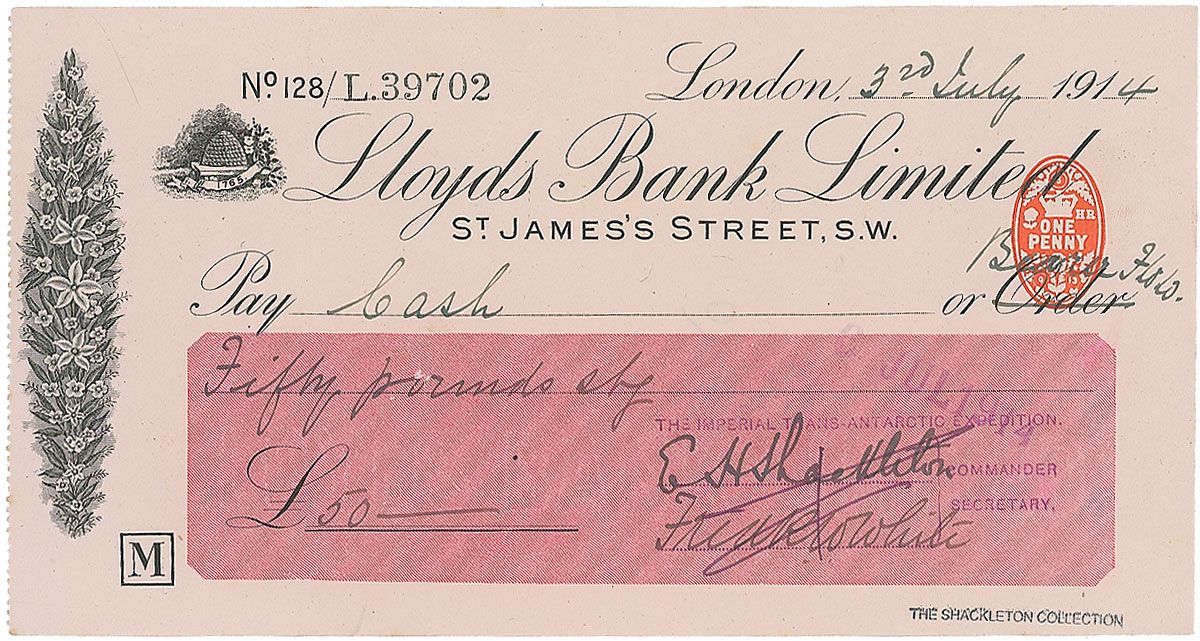 No 128/L.39702
London, 3rd July 1914
1765
Lloyds Bank Limited
ST JAMES'S STREET, S.W.
ONE
PENNY
Pay Cash or Order
Bearer
Fifty pounds stg
JUL 1914
THE IMPERIAL TRANS-ANTARCTIC EXPEDITION.
E H Shackleton COMMANDER
SECRETARY,
£50
M
THE SHACKLETON COLLECTION